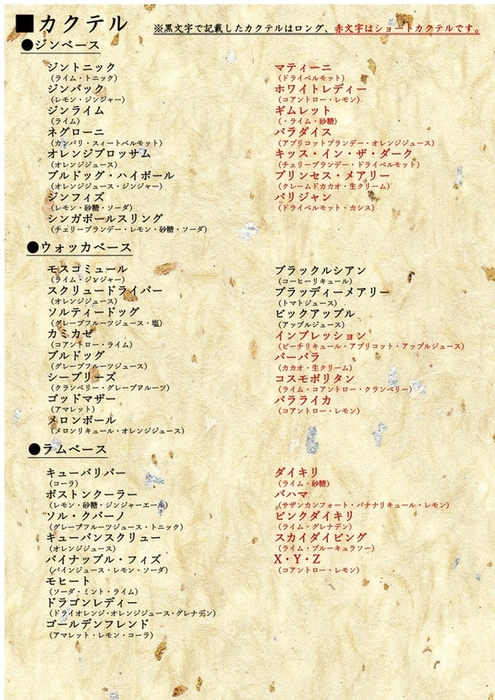 ■カクテル
※黒文字で記載したカクテルはロング、赤文字はショートカクテルです。
●ジンベース
ジントニック
(ライム・トニック)
ジンバック
(レモン・ジンジャー)
ジンライム
(ライム)
ネグローニ
(カンパリ・スィートベルモット)
オレンジブロッサム
(オレンジジュース)
ブルドッグ・ハイボール
(オレンジジュース・ジンジャー)
ジンフィズ
(レモン・砂糖・ソーダ)
シンガポールスリング
(チェリーブランデー・レモン・砂糖・ソーダ)
マティーニ
(ドライベルモット)
ホワイトレディー
(コアントロー・レモン)
ギムレット
(・ライム・砂糖)
パラダイス
(アプリコットブランデー・オレンジジュース)
キッス・イン・ザ・ダーク
(チェリーブランデー・ドライベルモット)
プリンセス・メアリー
(クレームドカカオ・生クリーム)
パリジャン
(ドライベルモット・カシス)
●ウォッカベース
モスコミュール
(ライム・ジンジャー)
スクリュードライバー
(オレンジジュース)
ソルティードッグ
(グレープフルーツジュース・塩)
カミカゼ
(コアントロー・ライム)
ブルドッグ
(グレープフルーツジュース)
シーブリーズ
(クランベリー・グレープフルーツ)
ゴッドマザー
(アマレット)
メロンボール
(メロンリキュール・オレンジジュース)
ブラックルシアン
(コーヒーリキュール)
ブラッディーメアリー
(トマトジュース)
ビックアップル
(アップルジュース)
インプレッション
(ピーチリキュール・アプリコット・アップルジュース)
バーバラ
(カカオ・生クリーム)
コスモポリタン
(ライム・コアントロー・クランベリー)
バラライカ
(コアントロー・レモン)
●ラムベース
キューバリバー
(コーラ)
ボストンクーラー
(レモン・砂糖・ジンジャーエール)
ソル・クバーノ
(グレープフルーツジュース・トニック)
キューバンスクリュー
(オレンジジュース)
パイナップル・フィズ
(パインジュース・レモン・ソーダ)
モヒート
(ソーダ・ミント・ライム)
ドラゴンレディー
(ドライオレンジ・オレンジジュース・グレナデン)
ゴールデンフレンド
(アマレット・レモン・コーラ)
ダイキリ
(ライム・砂糖)
バハマ
(サザンカンフォート・バナナリキュール・レモン)
ピンクダイキリ
(ライム・グレナデン)
スカイダイビング
(ライム・ブルーキュラソー)
X・Y・Z
(コアントロー・レモン)